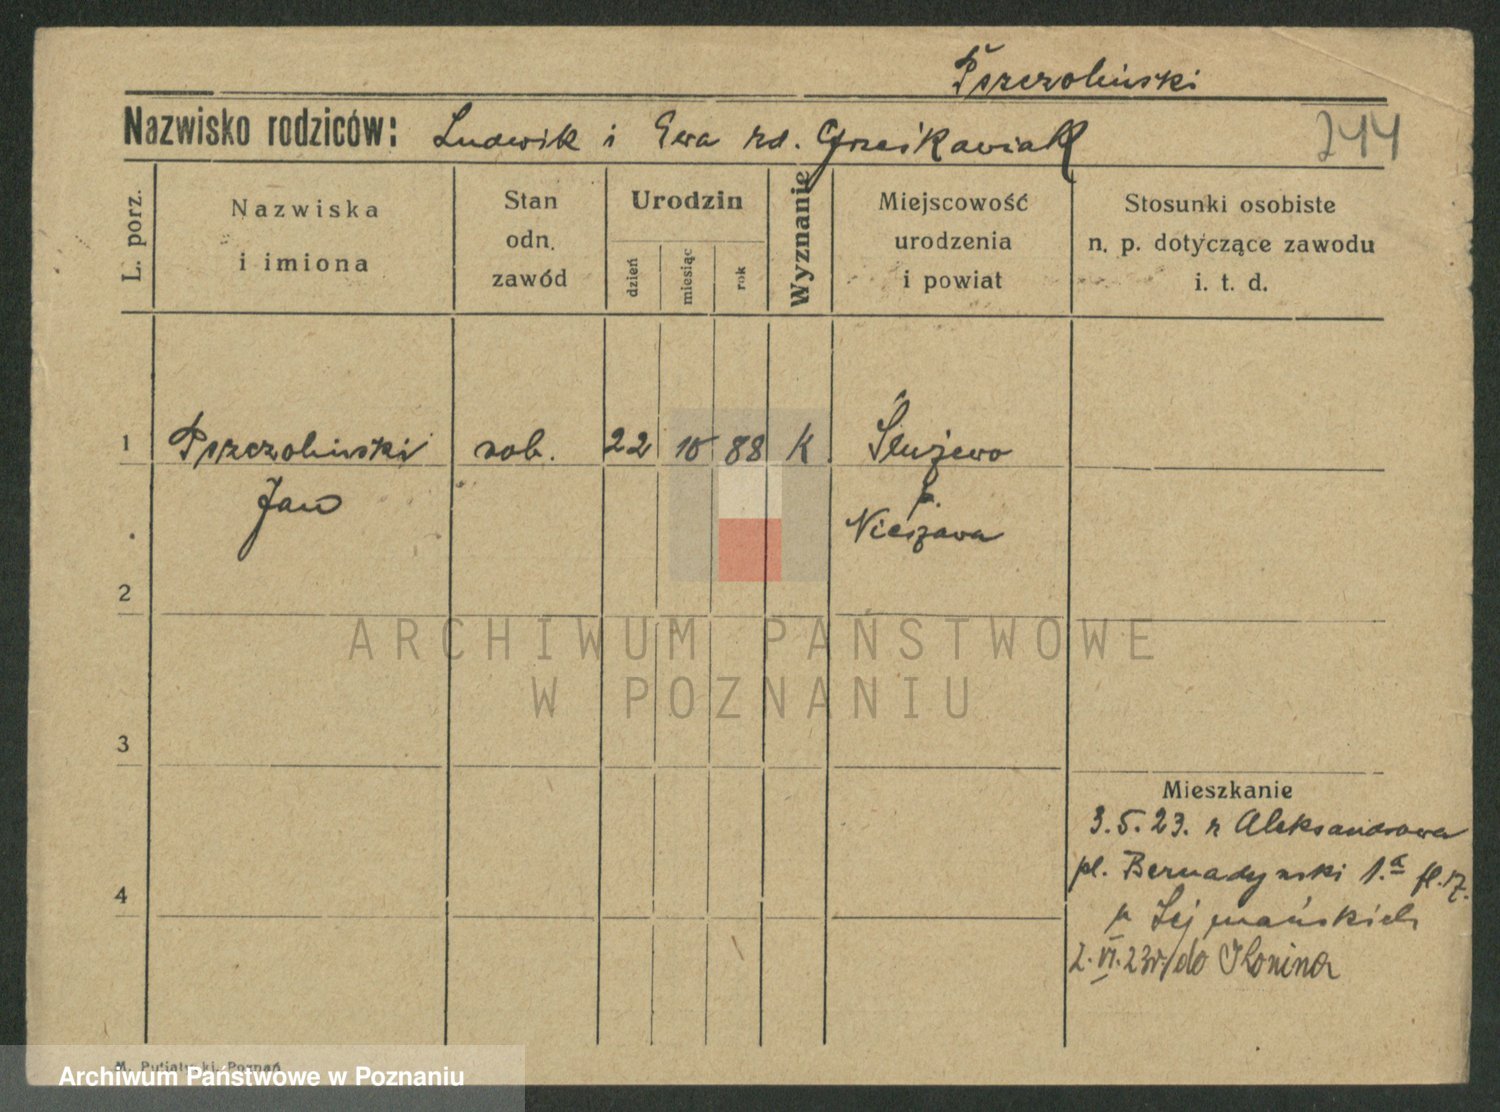 Pszczoliński
Nazwisko rodziców: Ludwik i Ewa rd. Grześkawiak
244
L. porz.
Nazwiska
i imiona
Stan
odn.
zawód
Urodzin
dzień
miesiąc
rok
Wyznanie
Miejscowość
urodzenia
i powiat
Stosunki osobiste
n. p. dotyczące zawodu
i. t. d.
1 Pszczoliński rob. 22 10 88 K Służewo
Jan p.
Nieszawa
2
3
4
Mieszkanie
3.5.23. z Aleksandrowa
pl. Bernadyński 1.a
2.VI.23r. do Konina
ARCHIWUM PAŃSTWOWE
W POZNANIU
M. Putiatycki, Poznań
Archiwum Państwowe w Poznaniu